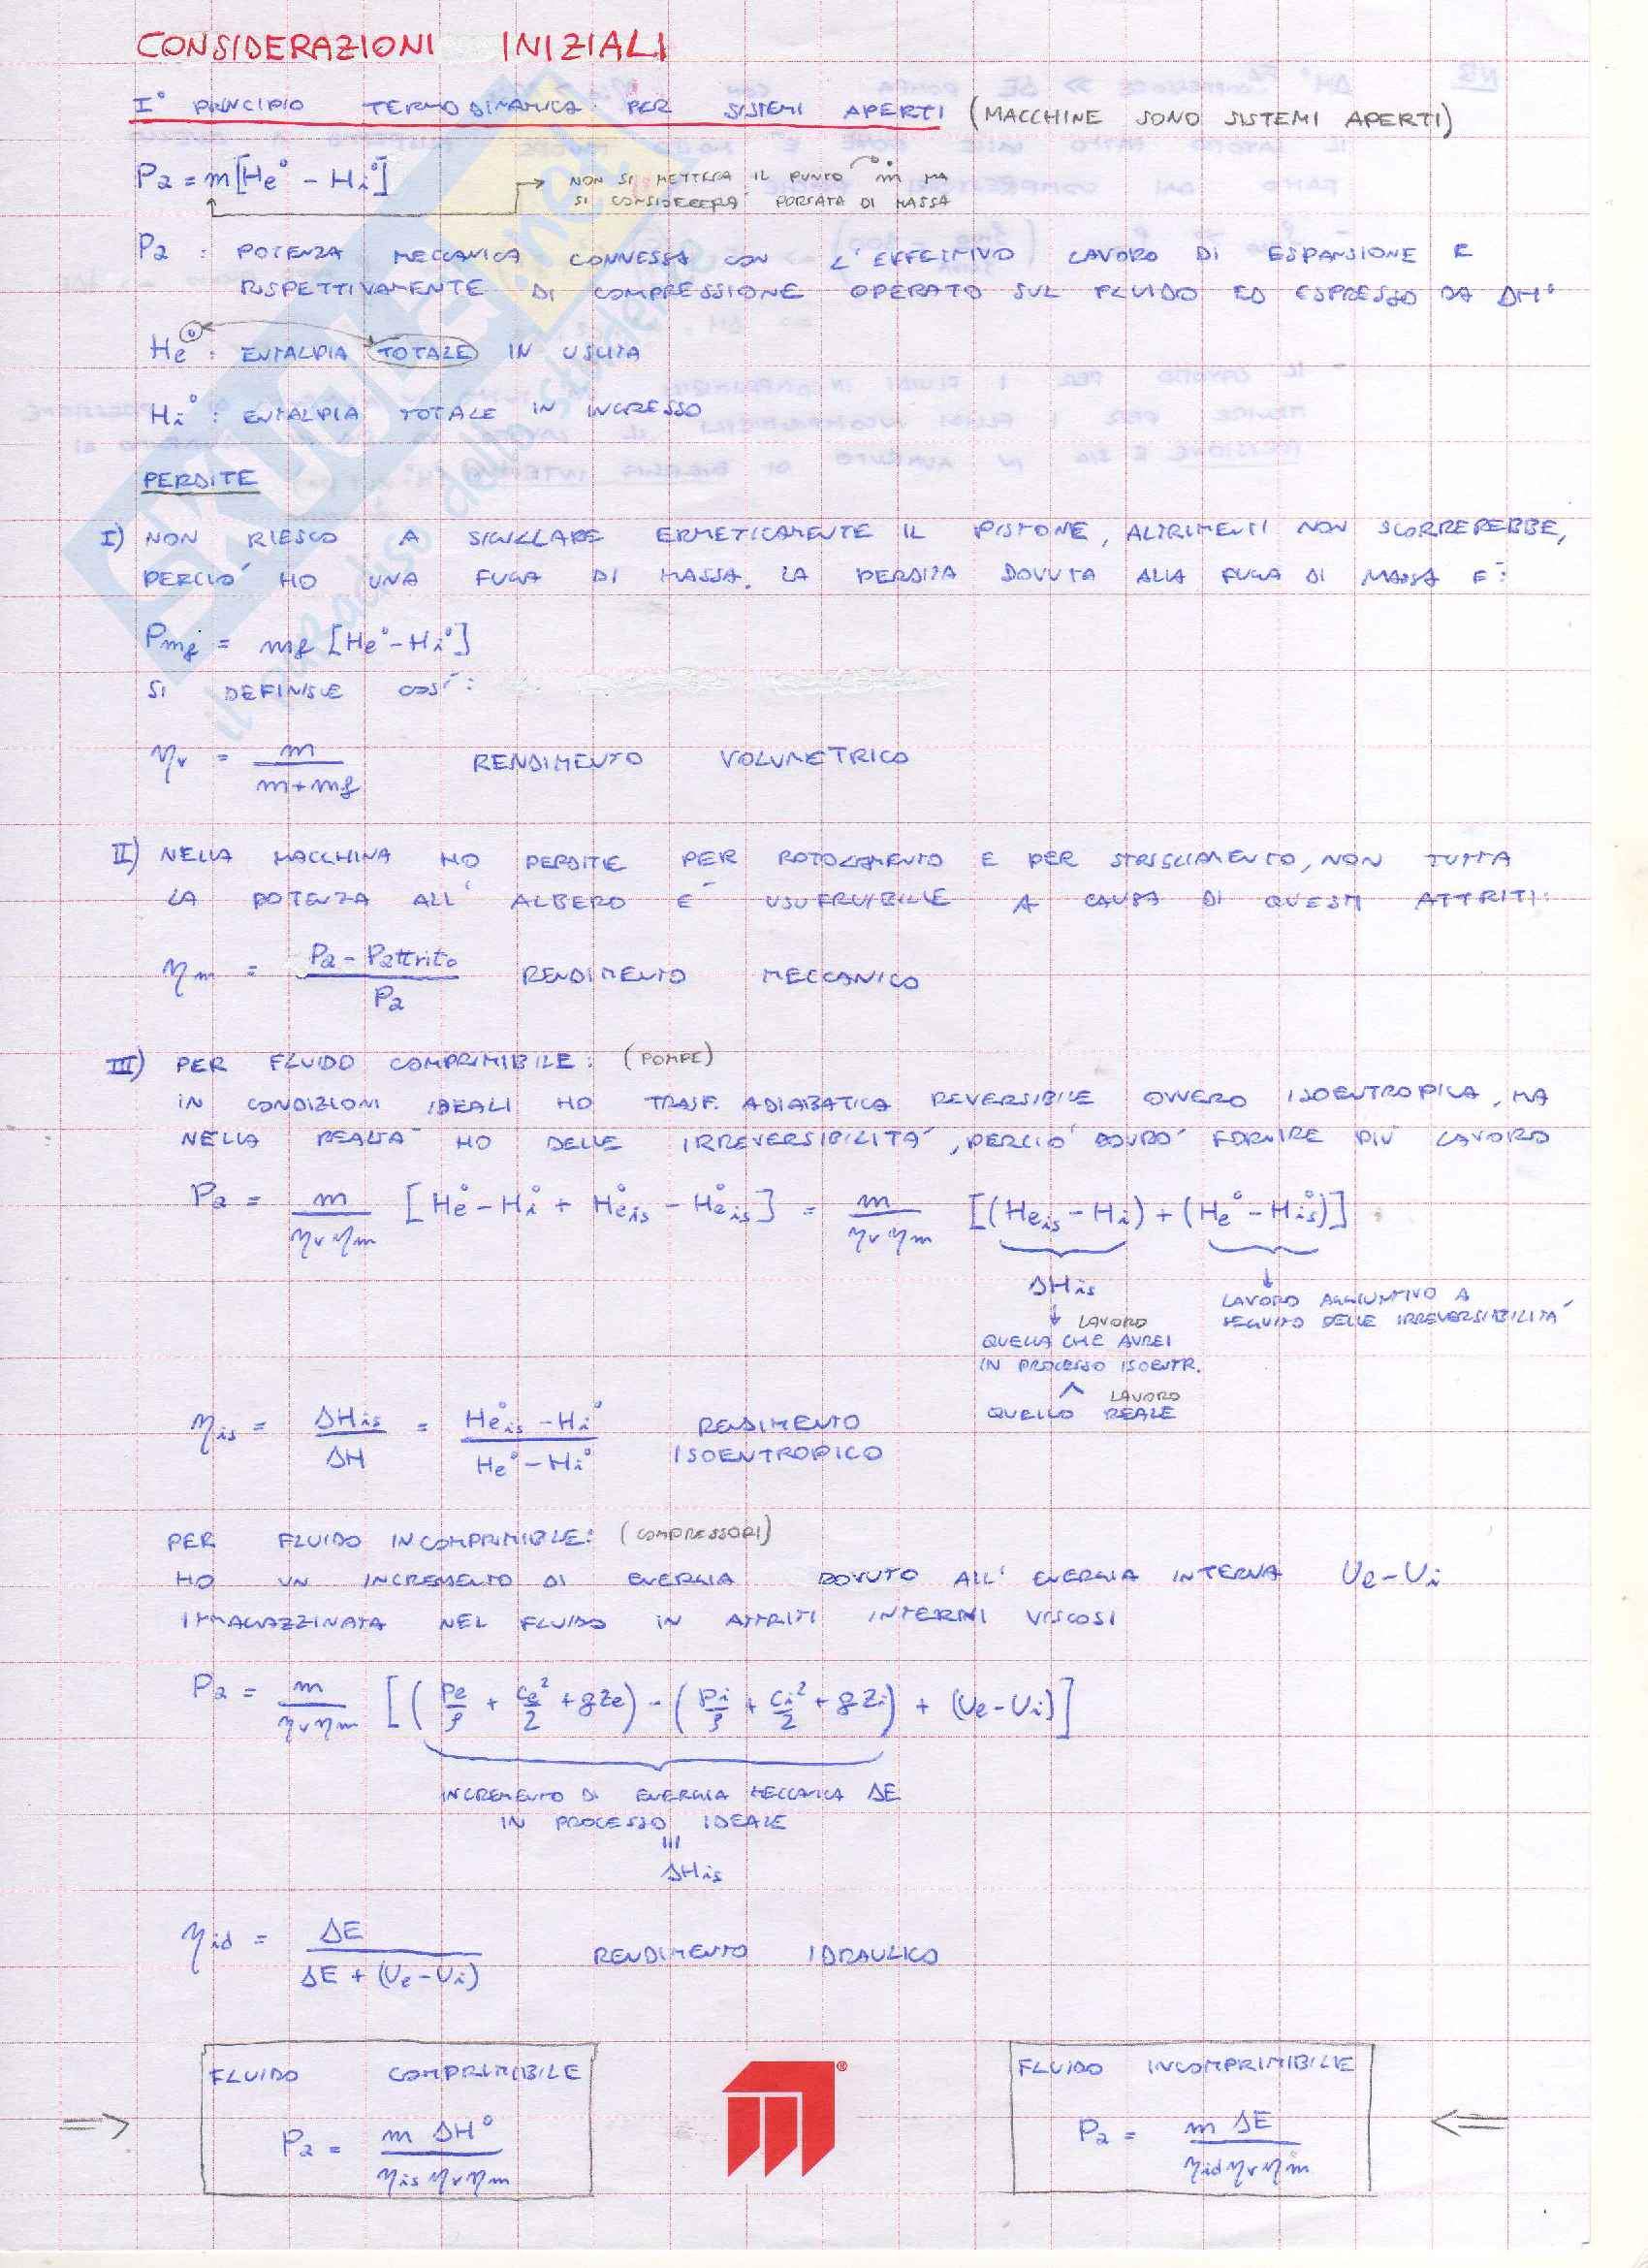 CONSIDERAZIONI INIZIALI
I° PRINCIPIO TERMODINAMICA PER SISTEMI APERTI (MACCHINE SONO SISTEMI APERTI)
Pa = m[He° - Hi°]
NON SI METTERÀ IL PUNTO ṁ MA
SI CONSIDERERÀ PORTATA DI MASSA
Pa : POTENZA MECCANICA CONNESSA CON L'EFFETTIVO LAVORO DI ESPANSIONE E
RISPETTIVAMENTE DI COMPRESSIONE OPERATO SUL FLUIDO ED ESPRESSO DA ΔH°
He° : ENTALPIA TOTALE IN USCITA
Hi° : ENTALPIA TOTALE IN INGRESSO
PERDITE
I) NON RIESCO A SIGILLARE ERMETICAMENTE IL PISTONE, ALTRIMENTI NON SCORREREBBE,
PERCIO' HO UNA FUGA DI MASSA. LA PERDITA DOVUTA ALLA FUGA DI MASSA E':
Pmf = mf [He° - Hi°]
SI DEFINISCE COSI':
ηv = m / (m + mf) RENDIMENTO VOLUMETRICO
II) NELLA MACCHINA HO PERDITE PER ROTOLAMENTO E PER STRISCIAMENTO, NON TUTTA
LA POTENZA ALL' ALBERO E' USUFRUIBILE A CAUSA DI QUESTI ATTRITI:
ηm = (Pa - Pattrito) / Pa RENDIMENTO MECCANICO
III) PER FLUIDO COMPRIMIBILE: (POMPE)
IN CONDIZIONI IDEALI HO TRASF. ADIABATICA REVERSIBILE OVVERO ISOENTROPICA, MA
NELLA REALTA' HO DELLE IRREVERSIBILITA', PERCIO' DOVRO' FORNIRE PIU' LAVORO
Pa = m / (ηv ηm) [He° - Hi° + He°is - He°is] = m / (ηv ηm) [(Heis - Hi) + (He° - H°is)]
ΔHis
LAVORO
QUELLA CHE AVREI
IN PROCESSO ISOENTR.
^ LAVORO
QUELLO REALE
LAVORO AGGIUNTIVO A
SEGUITO DELLE IRREVERSIBILITA'
ηis = ΔHis / ΔH = (He°is - Hi°) / (He° - Hi°) RENDIMENTO
ISOENTROPICO
PER FLUIDO INCOMPRIMIBILE: (COMPRESSORI)
HO UN INCREMENTO DI ENERGIA DOVUTO ALL' ENERGIA INTERNA Ue - Ui
IMMAGAZZINATA NEL FLUIDO IN ATTRITI INTERNI VISCOSI
Pa = m / (ηv ηm) [(pe/ρ + ce²/2 + gZe) - (pi/ρ + ci²/2 + gZi) + (Ue - Ui)]
INCREMENTO DI ENERGIA MECCANICA ΔE
IN PROCESSO IDEALE
≡
ΔHis
ηid = ΔE / (ΔE + (Ue - Ui)) RENDIMENTO IDRAULICO
FLUIDO COMPRIMIBILE
=> Pa = m ΔH° / (ηis ηv ηm)
®
FLUIDO INCOMPRIMIBILE
Pa = m ΔE / (ηid ηv ηm) <=